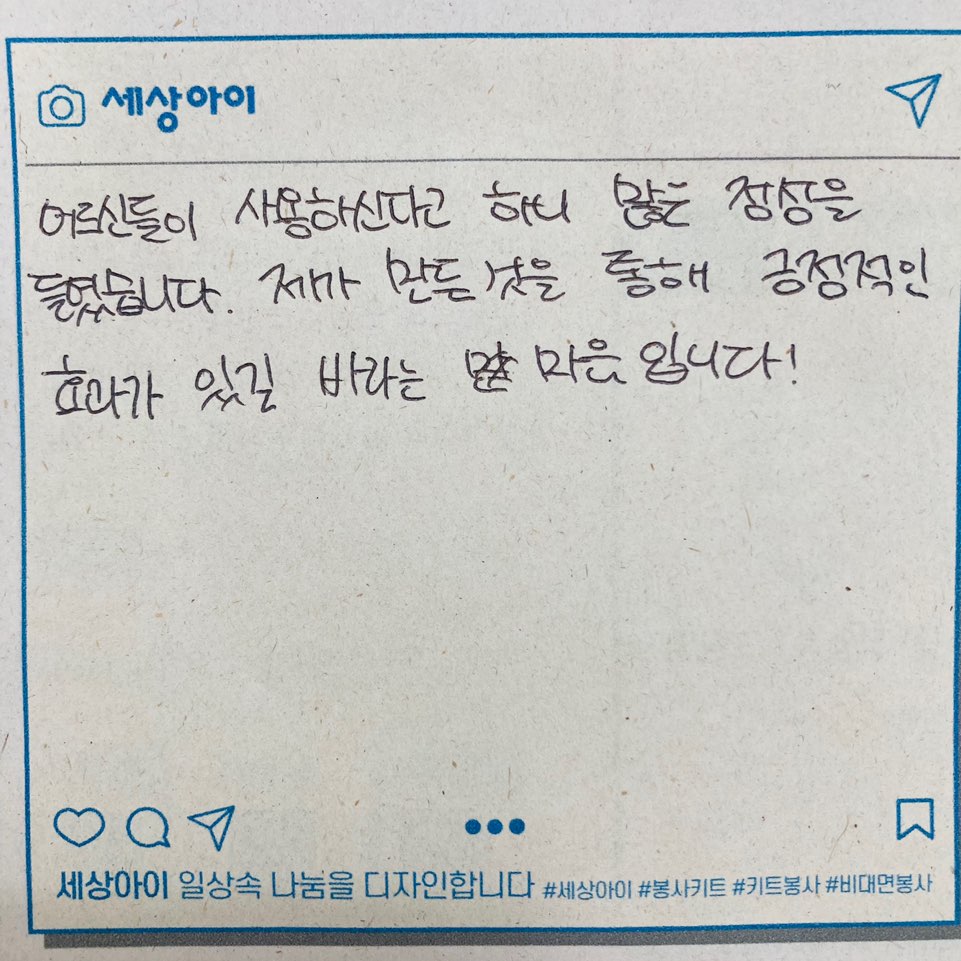 세상아이
어르신들이 사용하신다고 하니 많은 정성을
들였습니다. 제가 만든 것을 통해 긍정적인
효과가 있길 바라는 마음입니다!
세상아이 일상속 나눔을 디자인합니다 #세상아이 #봉사키트 #키트봉사 #비대면봉사